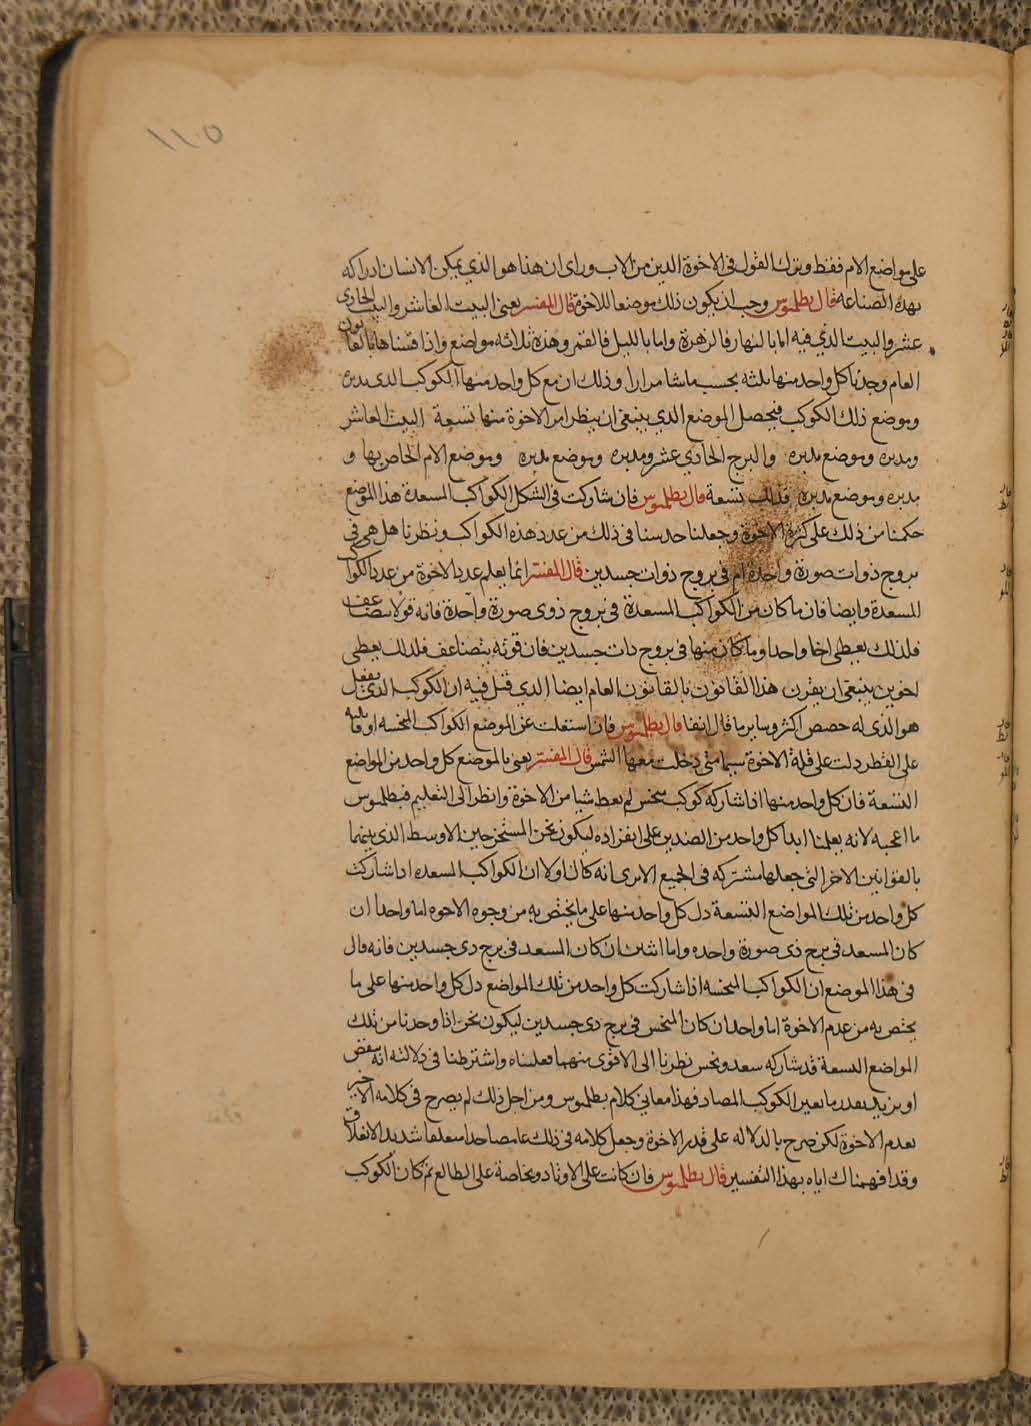 ١١٥
على مواضع الام فقط وترك القول فى الاخوة الذين من الاب وراى ان هذا هو الذي يمكن الانسان ادراكه
بهذه الصناعة قال بطلميوس وجب ان يكون ذلك موضعا للاخوة قال المفسر يعنى البيت العاشر والبيت الحادى
عشر والبيت الذي فيه اما بالنهار فالزهرة واما بالليل فالقمر وهذه ثلاثه مواضع واذا قسناها بالقانون
العام وجدنا كل واحد منها ثلثه بحسب ماشا مرارا وذلك ان مع كل واحد منها الكوكب الذى يدبره
وموضع ذلك الكوكب فيحصل الموضع الذي ينبغى ان ينظر امر الاخوة منها تسعة البيت العاشر
ومدبره وموضع مدبره والبرج الحادي عشر ومدبره وموضع مدبره وموضع الام الخاص بها و
مدبره وموضع مدبره فذلك تسعة قال بطلميوس فان شاركت فى الشكل الكواكب المسعدة هذا الموضع
حكمنا من ذلك على كثرة الاخوة وجعلنا حدسنا فى ذلك من عدد هذه الكواكب ونظرنا هل هى فى
بروج ذوات صورة واحدة ام فى بروج ذوات جسدين قال المفسر انما يعلم عدد الاخوة من عدد الكواكب
المسعدة وايضا فان ما كان من الكواكب المسعدة فى بروج ذوى صورة واحدة فانه قولا يتضاعف
فلذلك يعطى اخا واحدا وما كان منها فى بروج ذات جسدين فان قوته يتضاعف فلذلك يعطى
اخوين ينبغى ان يقرن هذا القانون بالقانون العام ايضا الذي قيل فيه ان الكوكب الذى يفعل
هو الذى له حصص اكثر وساير ما قال انفا قال بطلميوس فان استعلت عن الموضع الكواكب المنحسه او قابلته
على القطر دلت على قلة الاخوة سيما متى دخلت معها الشمس قال المفسر يعنى بالموضع كل واحد من المواضع
التسعة فان كل واحد منها اذا شاركه كوكب منحس لم يعط شيا من الاخوة وانظر الى التعليم فبطلميوس
ما اعجبه لانه يعلمنا ابدا كل واحد من الضدين على انفراده ليكون نحن المستخرجين الاوسط الذي بينهما
بالقوانين الاخر التى جعلها مشتركه فى الجميع الا ترى انه كان اولا ان الكواكب المسعده اذا شاركت
كل واحد من تلك المواضع التسعة دل كل واحد منها على ما يختص به من وجوه الاخوه اما واحدا ان
كان المسعد فى برج ذى صورة واحده واما اثنين ان كان المسعد فى برج ذى جسدين فانه قال
فى هذا الموضع ان الكواكب المنحسه اذا شاركت كل واحد من تلك المواضع دل كل واحد منها على ما
يختص به من عدم الاخوة اما واحدا ان كان المنحس فى برج ذى جسدين ليكون نحن اذا وجدنا من تلك
المواضع التسعة قد شاركه سعد ونحس نظرنا الى الاقوى منهما فعلمناه واشترطنا فى دلالته انه ينقص
او يزيد بقدر ما يعين الكوكب المضاد فهذا معانى كلام بطلميوس ومن اجل ذلك لم يصرح فى كلامه الاخير
بعدم الاخوة لكن صرح بالدلاله على قدر الاخوة وجعل كلامه فى ذلك غامضا جدا منغلقا شديد الانغلاق
وقد افهمناك اياه بهذا التفسير قال بطلميوس فان كانت على الاوتاد وبخاصة على الطالع ثم كان الكوكب